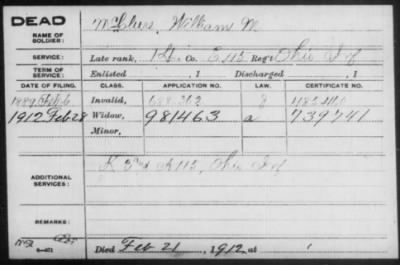 DEAD
NAME OF SOLDIER: William M.
SERVICE: Late rank, Co. E, 115 Reg't Ohio Inf
TERM OF SERVICE: Enlisted , 1 Discharged , 1
DATE OF FILING. CLASS. APPLICATION NO. LAW. CERTIFICATE NO.
1889 Feb 6 Invalid,
1912 Feb 28 Widow, 981463 a 739741
Minor,
ADDITIONAL SERVICES: K 115, Ohio Inf
REMARKS:
Died Feb 21, 1912, at